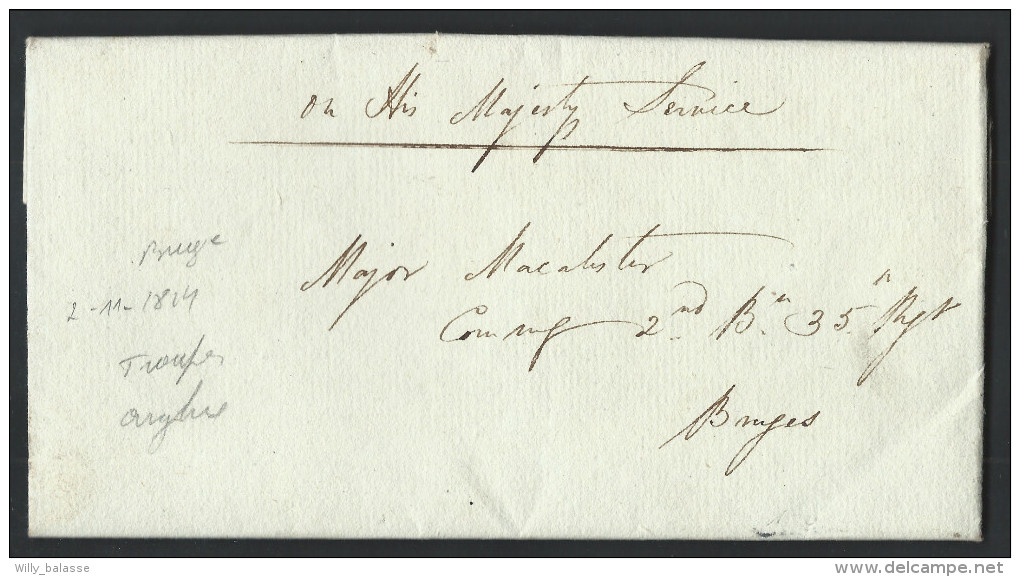 on His Majesty Service
Major Macalister
Commg 2nd Bn 35h Rgt
Bruges
Bruge
2-11-1814
Troupes
anglaise
Willy_balasse
www.delcampe.net